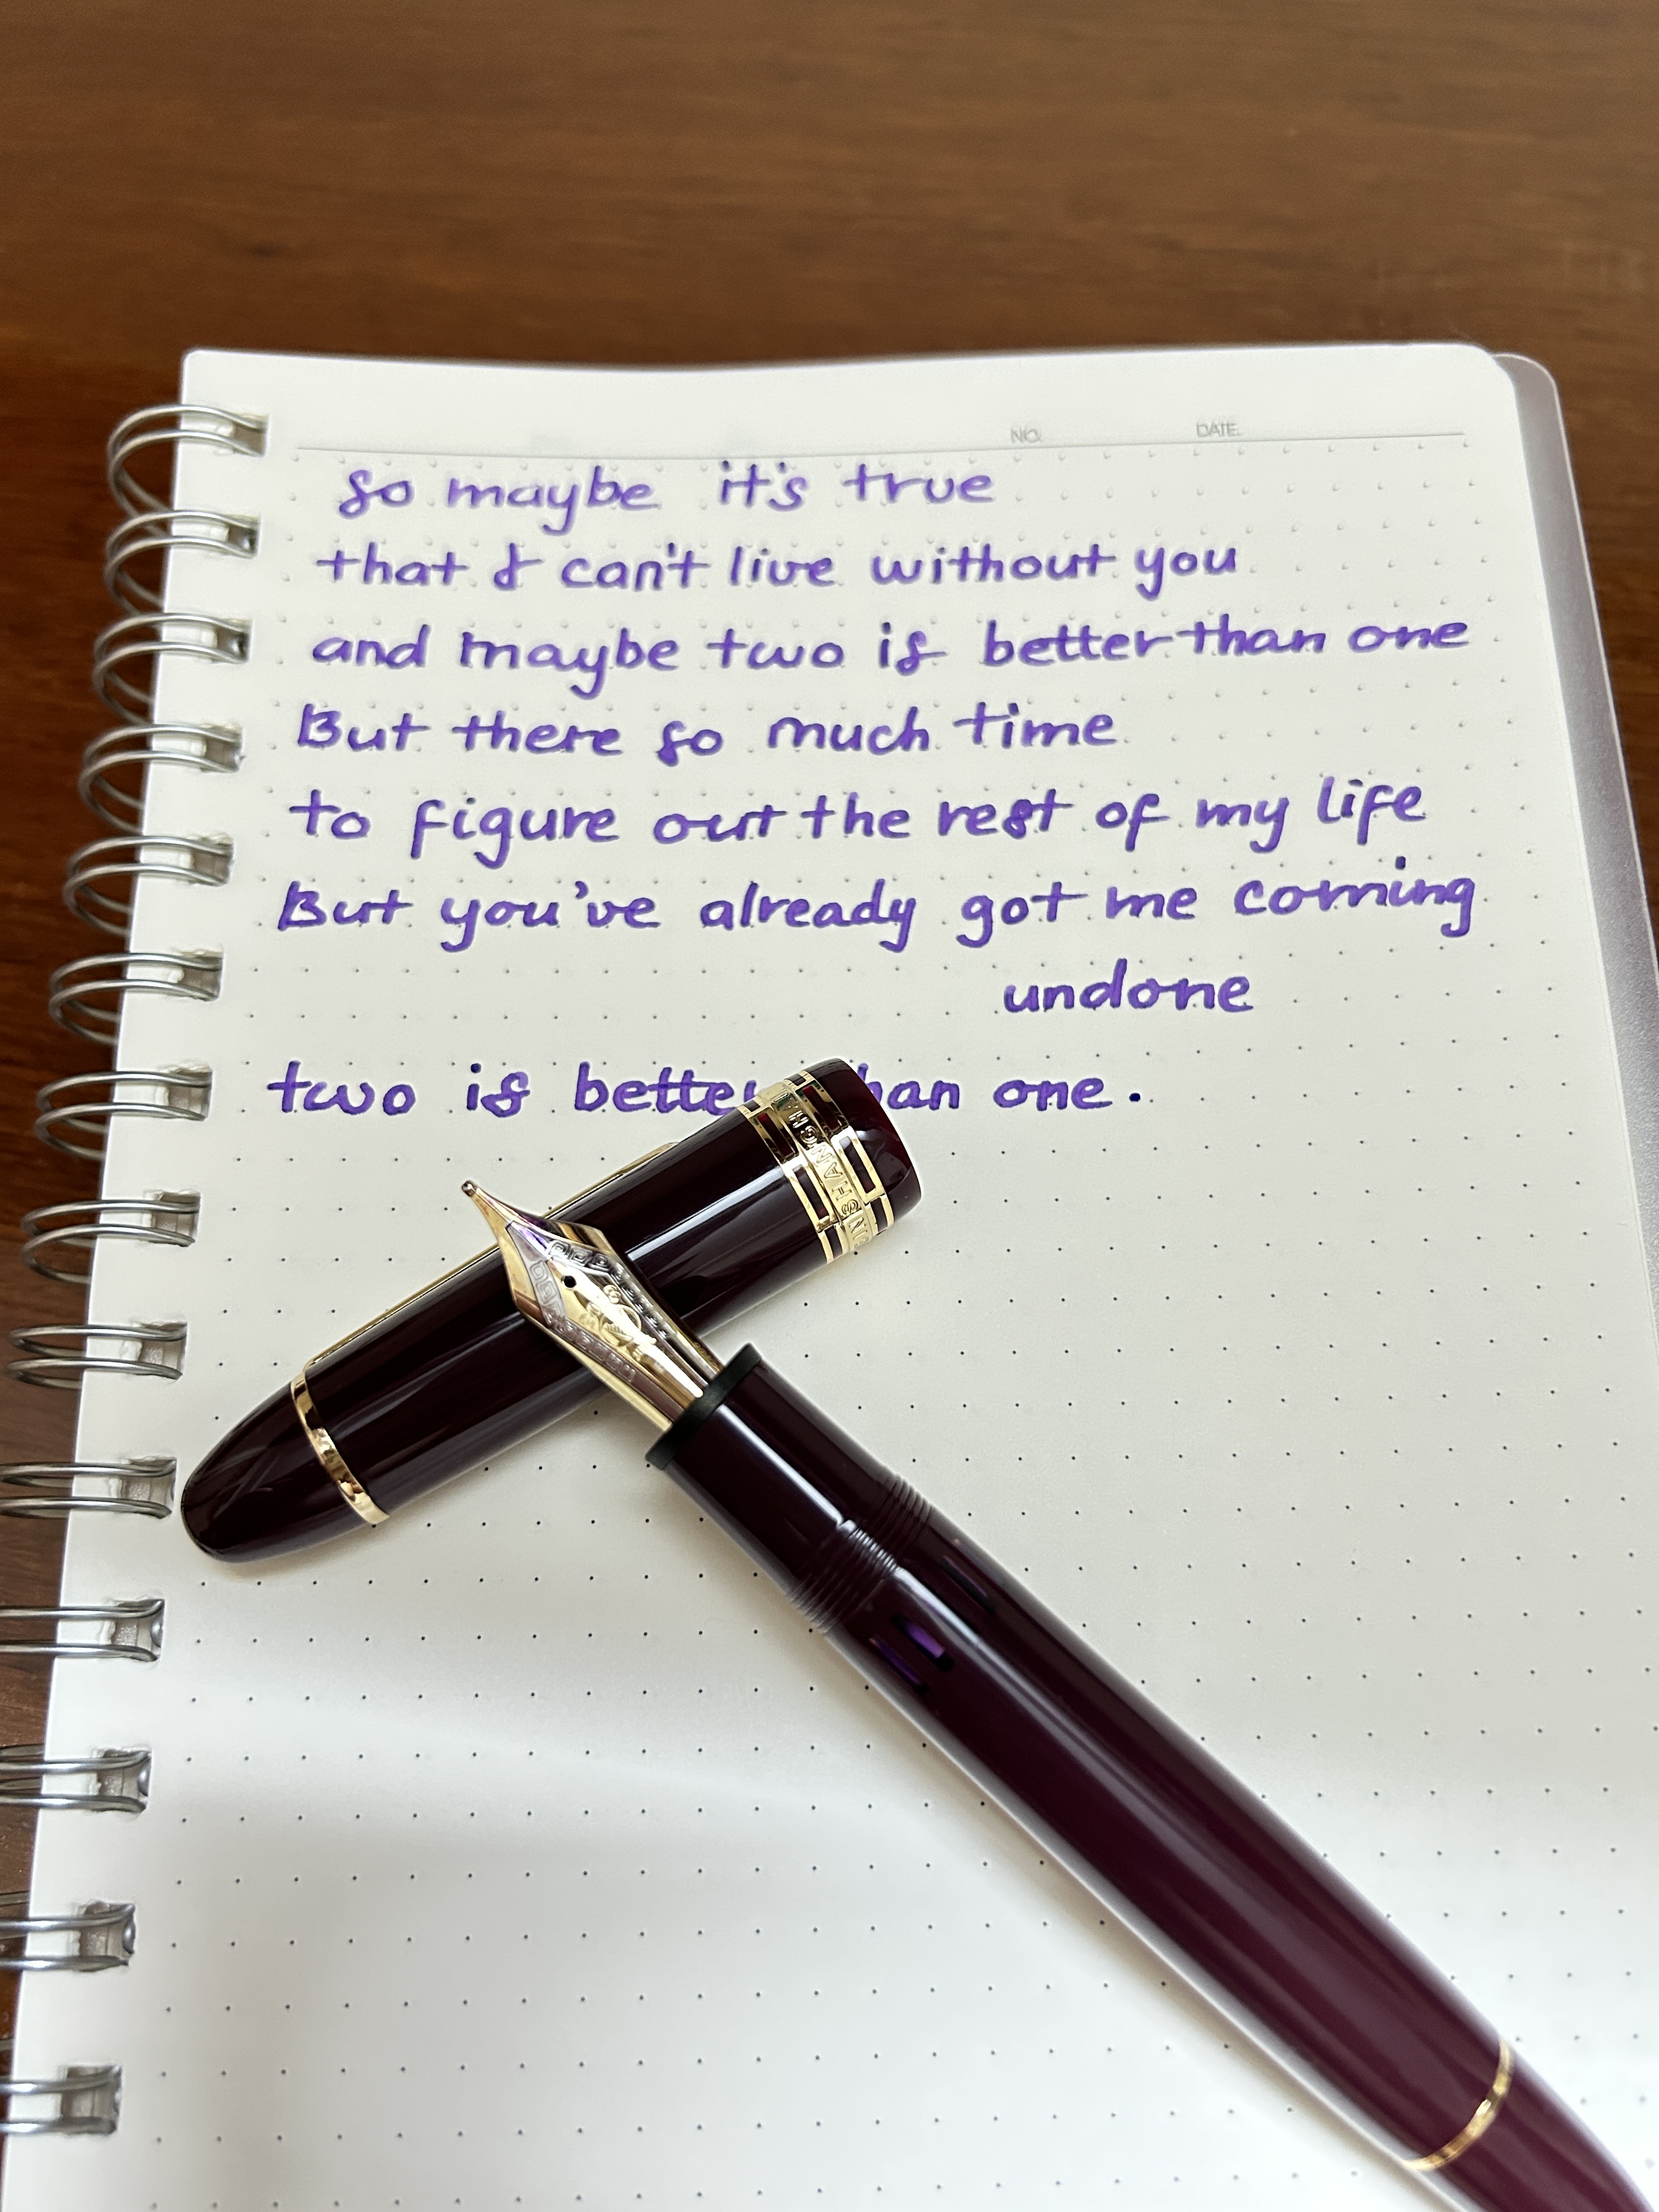 NO. DATE.
so maybe it's true
that I can't live without you
and maybe two is better than one
But there so much time
to figure out the rest of my life
But you've already got me coming
undone
two is better than one.